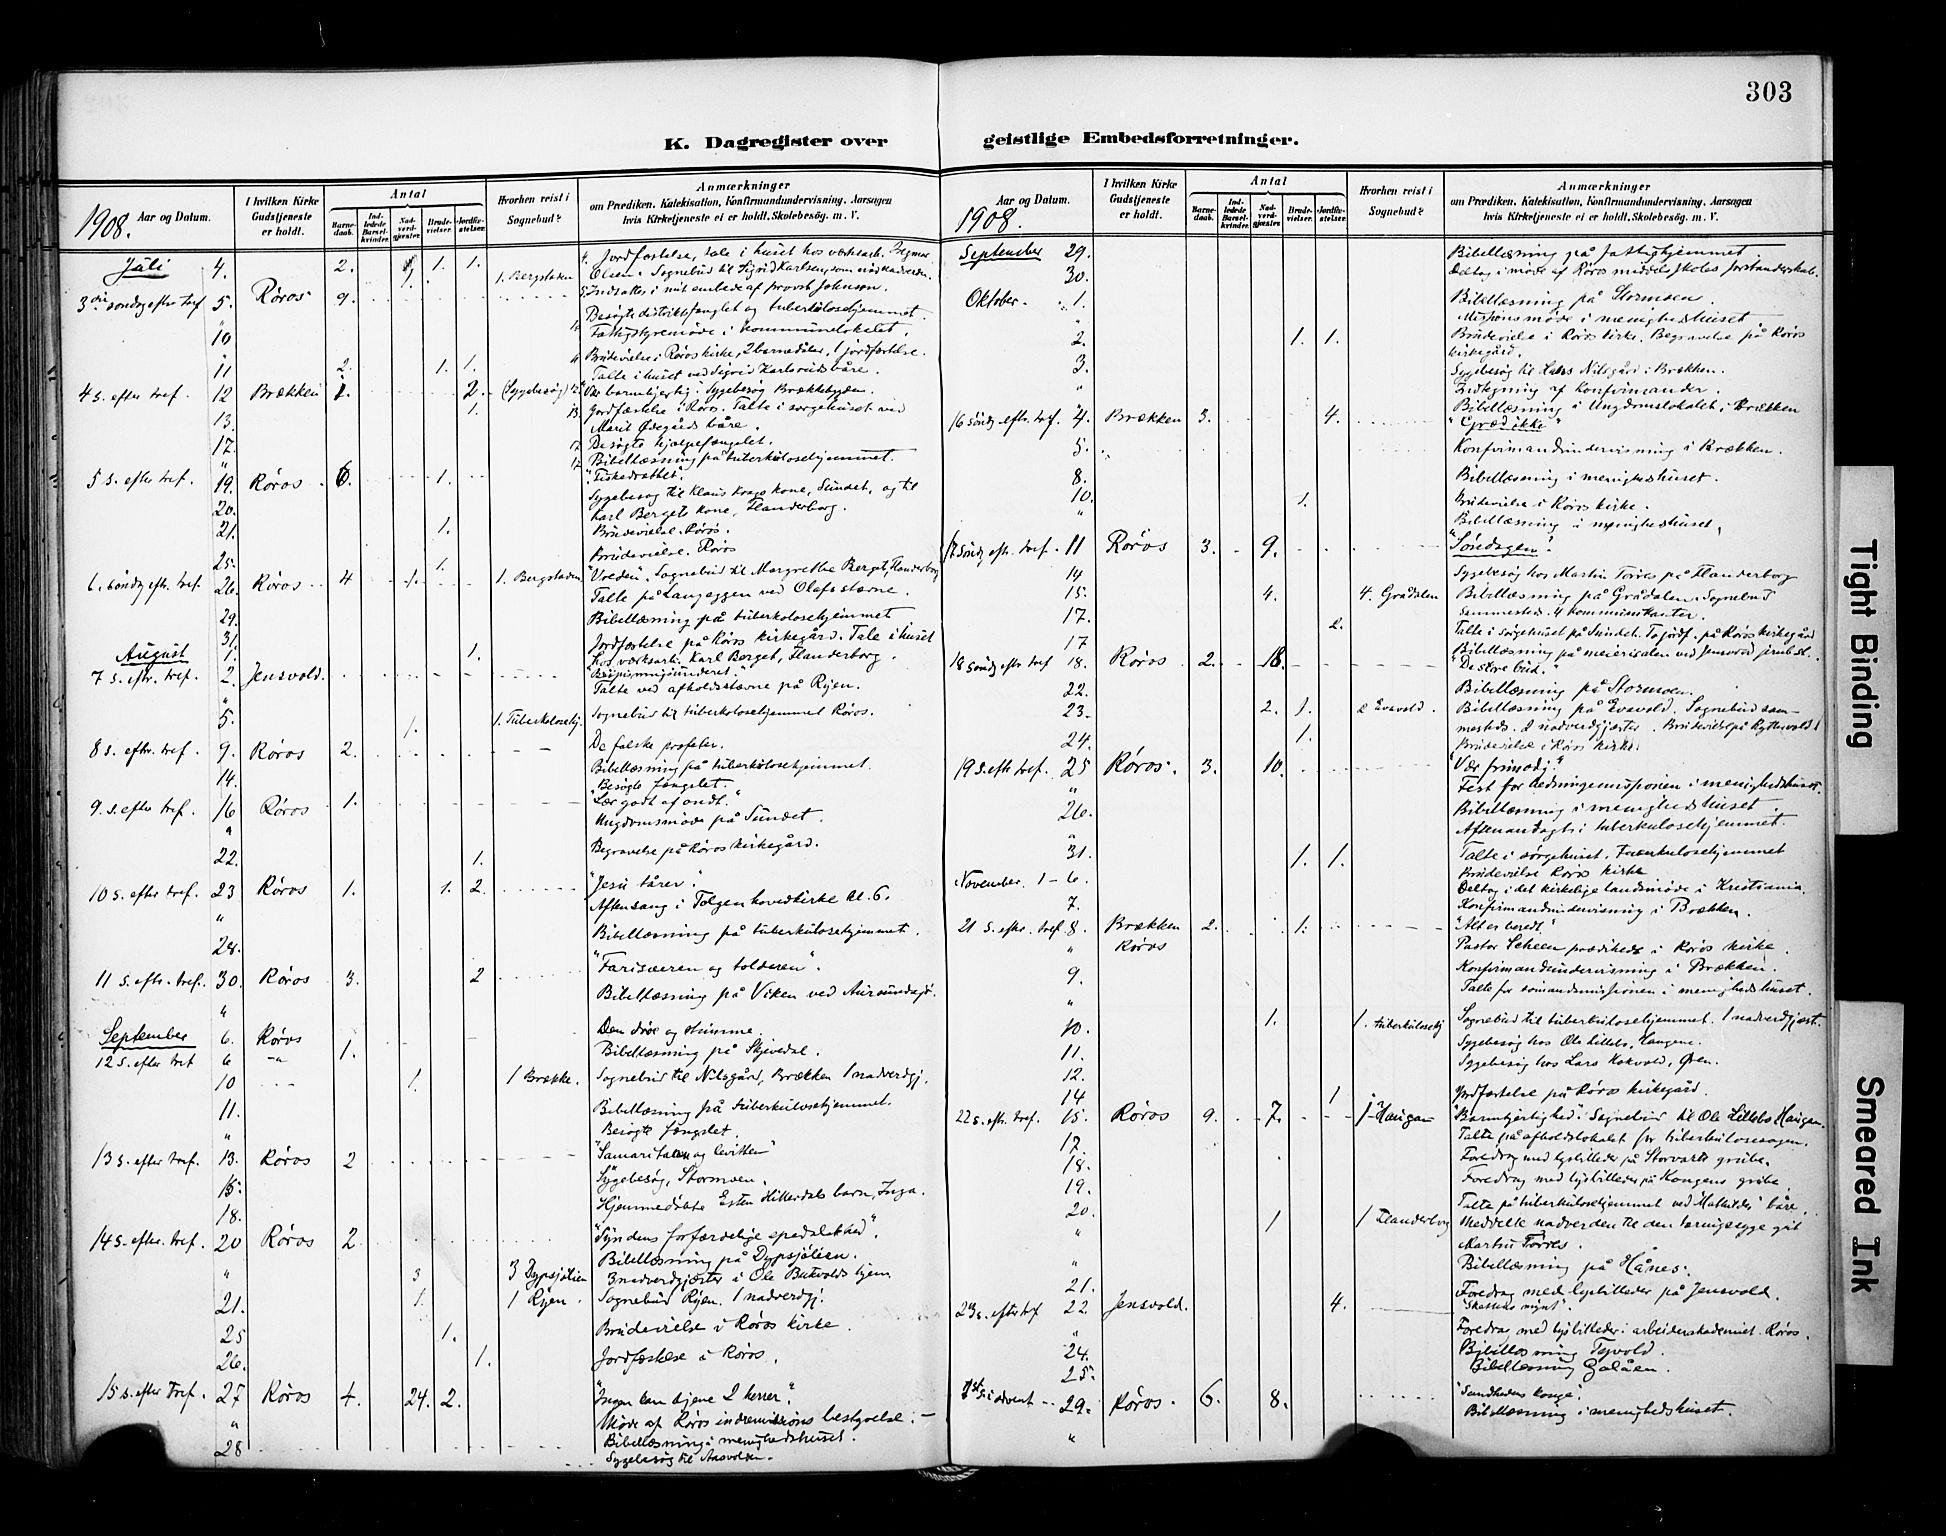 303
K. Dagregister over geistlige Embedsforretninger.
1908. Aar og Datum.
I hvilken Kirke Gudstjeneste er holdt.
Antal
Barnedaab.
Indledede Barselkvinder.
Nadverdgjester.
Brudevielser.
Jordfæstelser.
Hvorhen reist i Sognebud?
Anmærkninger
om Prædiken. Katekisation, Konfirmandundervisning. Aarsagen
hvis Kirketjeneste ei er holdt. Skolebesøg. m. V.
Juli 4. 2. 1. 1. 4. Jordfæstelse, tale i huset hos værksarb.
1. Bergstaden Olsen. Sognebud til Sigrid Karlsen, som nød nadverden.
3die søndag efter tref. 5. Røros 9. 5. Indsattes i mit embede af provst Johnson.
Besøgte distriktsfænglet og tuberkulosehjemmet.
10 Fattigstyremøde i kommunelokalet.
11 2. 1. 1. Brudevielse i Røros kirke, 2 barnedåber, 1 jordfæstelse.
Talte i huset ved Sigrid Karlsens båre.
4 s. efter tref. 12 Brækken 1. 2. (Sygebesøg) Sygebesøg Brækkebygden.
13. 1. Jordfæstelse i Røros. Talte i sørgehuset ved
Marit Ødegårds båre.
17. Besøgte hjælpefængslet.
" Bibellæsning på tuberkulosehjemmet.
5 s. efter tref. 19. Røros 6. 1. "Fiskedrættet".
20. Sygebesøg til Klaus Krags kone, Sundet, og til
Karl Bergets kone, Flanderborg.
21. 1. Brudevielse. Røros.
25. 1. Brudevielse. Røros
6. søndag efter tref. 26. Røros 4 1. 1. Bergstaden "Vreden". Sognebud til Margrethe Berget, Flanderborg
Talte på Langeggen ved Olafsstævne.
29. Bibellæsning på tuberkulosehjemmet
31. Jordfæstelse på Røros kirkegård. Tale i huset
August 1. 1. hos værksarb. Karl Berget, Flanderborg.
7 s. eftr. tref. 2. Jensvold. "Bespisningsunderet."
" Talte ved afholdsstævne på Ryen.
5. 1. 1. Tuberkulosehj. Sognebud til tuberkulosehjemmet Røros.
8 s. eftr. tref. 9. Røros 2. De falske profeter.
14. Bibellæsning på tuberkulosehjemmet.
Besøgte fængslet.
9. s. efter tref. 16 Røros 1. "Lær godt af ondt."
" Ungdomsmøde på Sundet.
22. 1. Begravelse på Røros kirkegård.
10 s. efter tref. 23 Røros 1. 1. 2. "Jesu tårer."
" Aftensang i Tolgen hovedkirke kl. 6.
28. Bibellæsning på tuberkulosehjemmet.
11 s. eftr. tref. 30. Røros 3. 2 "Farisæeren og tolderen".
" Bibellæsning på Viken ved Aursundsjø.
September 6. Røros Den døve og stumme.
12 s. efter tref 6 -"- 1. Bibellæsning på Skjevdal.
10 1. 1 Brække. Sognebud til Nilsgård, Brækken 1 nadverdgj.
11. Bibellæsning på tuberkulosehjemmet.
" Besøgte fængslet.
13 s. efter tref. 13. Røros 2 "Samaritanen og levitten"
15. Sygebesøg, Stormoen.
18. Hjemmedøbte Esten Hitterdals barn, Inga.
14 s. eftr. tref. 20 Røros 2 "Syndens forfærdelige spedalskhed".
Bibellæsning på Dypsjølien.
" 3 3 Dypsjølien 3 nadverdgjæster i Ole Bukvolds hjem
21. 1. 1 Ryen. Sognebud Ryen. 1 nadverdgj.
25 1. Brudevielse i Røros kirke.
26. 1. Jordfæstelse i Røros.
15 s. efter tref. 27 Røros 4. 24. 2. "Ingen kan tjene 2 herrer".
" Møde af Røros indremissions bestyrelse. –
28 Bibellæsning i menighedshuset.
Sygebesøg til Aasvolden.
1908. Aar og Datum.
I hvilken Kirke Gudstjeneste er holdt.
Antal
Barnedaab.
Indledede Barselkvinder.
Nadverdgjester.
Brudevielser.
Jordfæstelser.
Hvorhen reist i Sognebud?
Anmærkninger
om Prædiken. Katekisation, Konfirmandundervisning. Aarsagen
hvis Kirketjeneste ei er holdt. Skolebesøg. m. V.
September 29. Bibellæsning på fattighjemmet
30. Deltog i møde af Røros middelskoles forstanderskab.
Oktober 1. Bibellæsning på Stormoen.
" Missionsmøde i menighedshuset
2. 1. 1. Brudevielse i Røros kirke. Begravelse på Røros
kirkegård.
3. Sygebesøg til Nilsgård i Brækken.
" Indtegning af konfirmander.
" Bibellæsning i Ungdomslokalet, Brækken
16 sønd. eftr. tref. 4. Brækken 3. 4. "Græd ikke"
5. Konfirmandundervisning i Brækken.
8. Bibellæsning i menighedshuset.
10. 1. Brudevielse i Røros kirke.
" Bibellæsning i menighedshuset.
17 sønd. eftr. tref. 11 Røros 3. 9. "Søndagen".
14 Sygebesøg hos Martin Torres på Flanderborg
15. 4. 4. Grådalen Bibellæsning på Grådalen. Sognebud
sammesteds. 4 kommunikanter.
17. 2. Talte i sørgehuset på Sundet. To jordf. på Røros kirkegård
17 Bibellæsning på meierisalen ved Jensvold jernb.st.
18 sønd. eftr. tref 18. Røros 2. 18. "De store bud."
22. Bibellæsning på Stormoen.
23. 2. 1. 2 Evavold. Bibellæsning på Evavold. Sognebud sam-
mesteds. 2 nadverdgjæster. Brudevielse på Ryttervold
24. 1. Brudevielse i Røros kirke.
19 s. eftr. tref. 25 Røros. 3. 10. "Vær frimodig"
" Fest for Redningsmissionen i menighedshuset.
26. Bibellæsning i menighedshuset.
" Aftenandagt i tuberkulosehjemmet.
31. 1. 1. Talte i sørgehuset. Tuberkulosehjemmet
Brudevielse Røros kirke
November. 1-6. Deltog i det kirkelige landsmøde i Kristiania.
7. Konfirmandundervisning i Brækken.
21 s. eftr. tref 8. Brækken 2. 1. "Alt er beredt."
" Røros Pastor Scheen prædikede i Røros kirke.
9. Konfirmandundervisning i Brækken.
" Talte for sømandsmissionen i menighedshuset.
10. 1. 1. tuberkulosehj Sognebud til tuberkulosehjemmet. 1 nadverdgjæst.
11. Sygebesøg hos Ole Lillebo, Haugene.
12. Sygebesøg hos Lars Kokvold, Øren.
14 1 Jordfæstelse på Røros kirkegård.
22 s. eftr. tref. 15. Røros 9. 7. 1 Haugan "Barmhjertighed." Sognebud til Ole Lillebo Haugan.
17. Talte på afholdslokalet for tuberkulosesagen.
18. Foredrag med lysbilleder på Storvarts grube.
19. Foredrag med lysbilleder på Kongens grube.
20. Talte på tuberkulosehjemmet ved Mathildes båre.
" 1 1 Flanderborg Meddelte nadverden til den
Martin Torres.
" Bibellæsning på Hånes.
21. Foredrag med lysbilleder på Jensvold.
23 s. efter tref 22. Jensvold. 4. "Skattens mynt".
" Foredrag med lysbilleder i arbeiderakademiet. Røros.
24. Bibellæsning
25. Bibellæsning Galåen.
1st s. i advent 29. Røros. 6. 8. "Sandhedens konge".
" Bibellæsning i menighedshuset.
Tight Binding
Smeared Ink